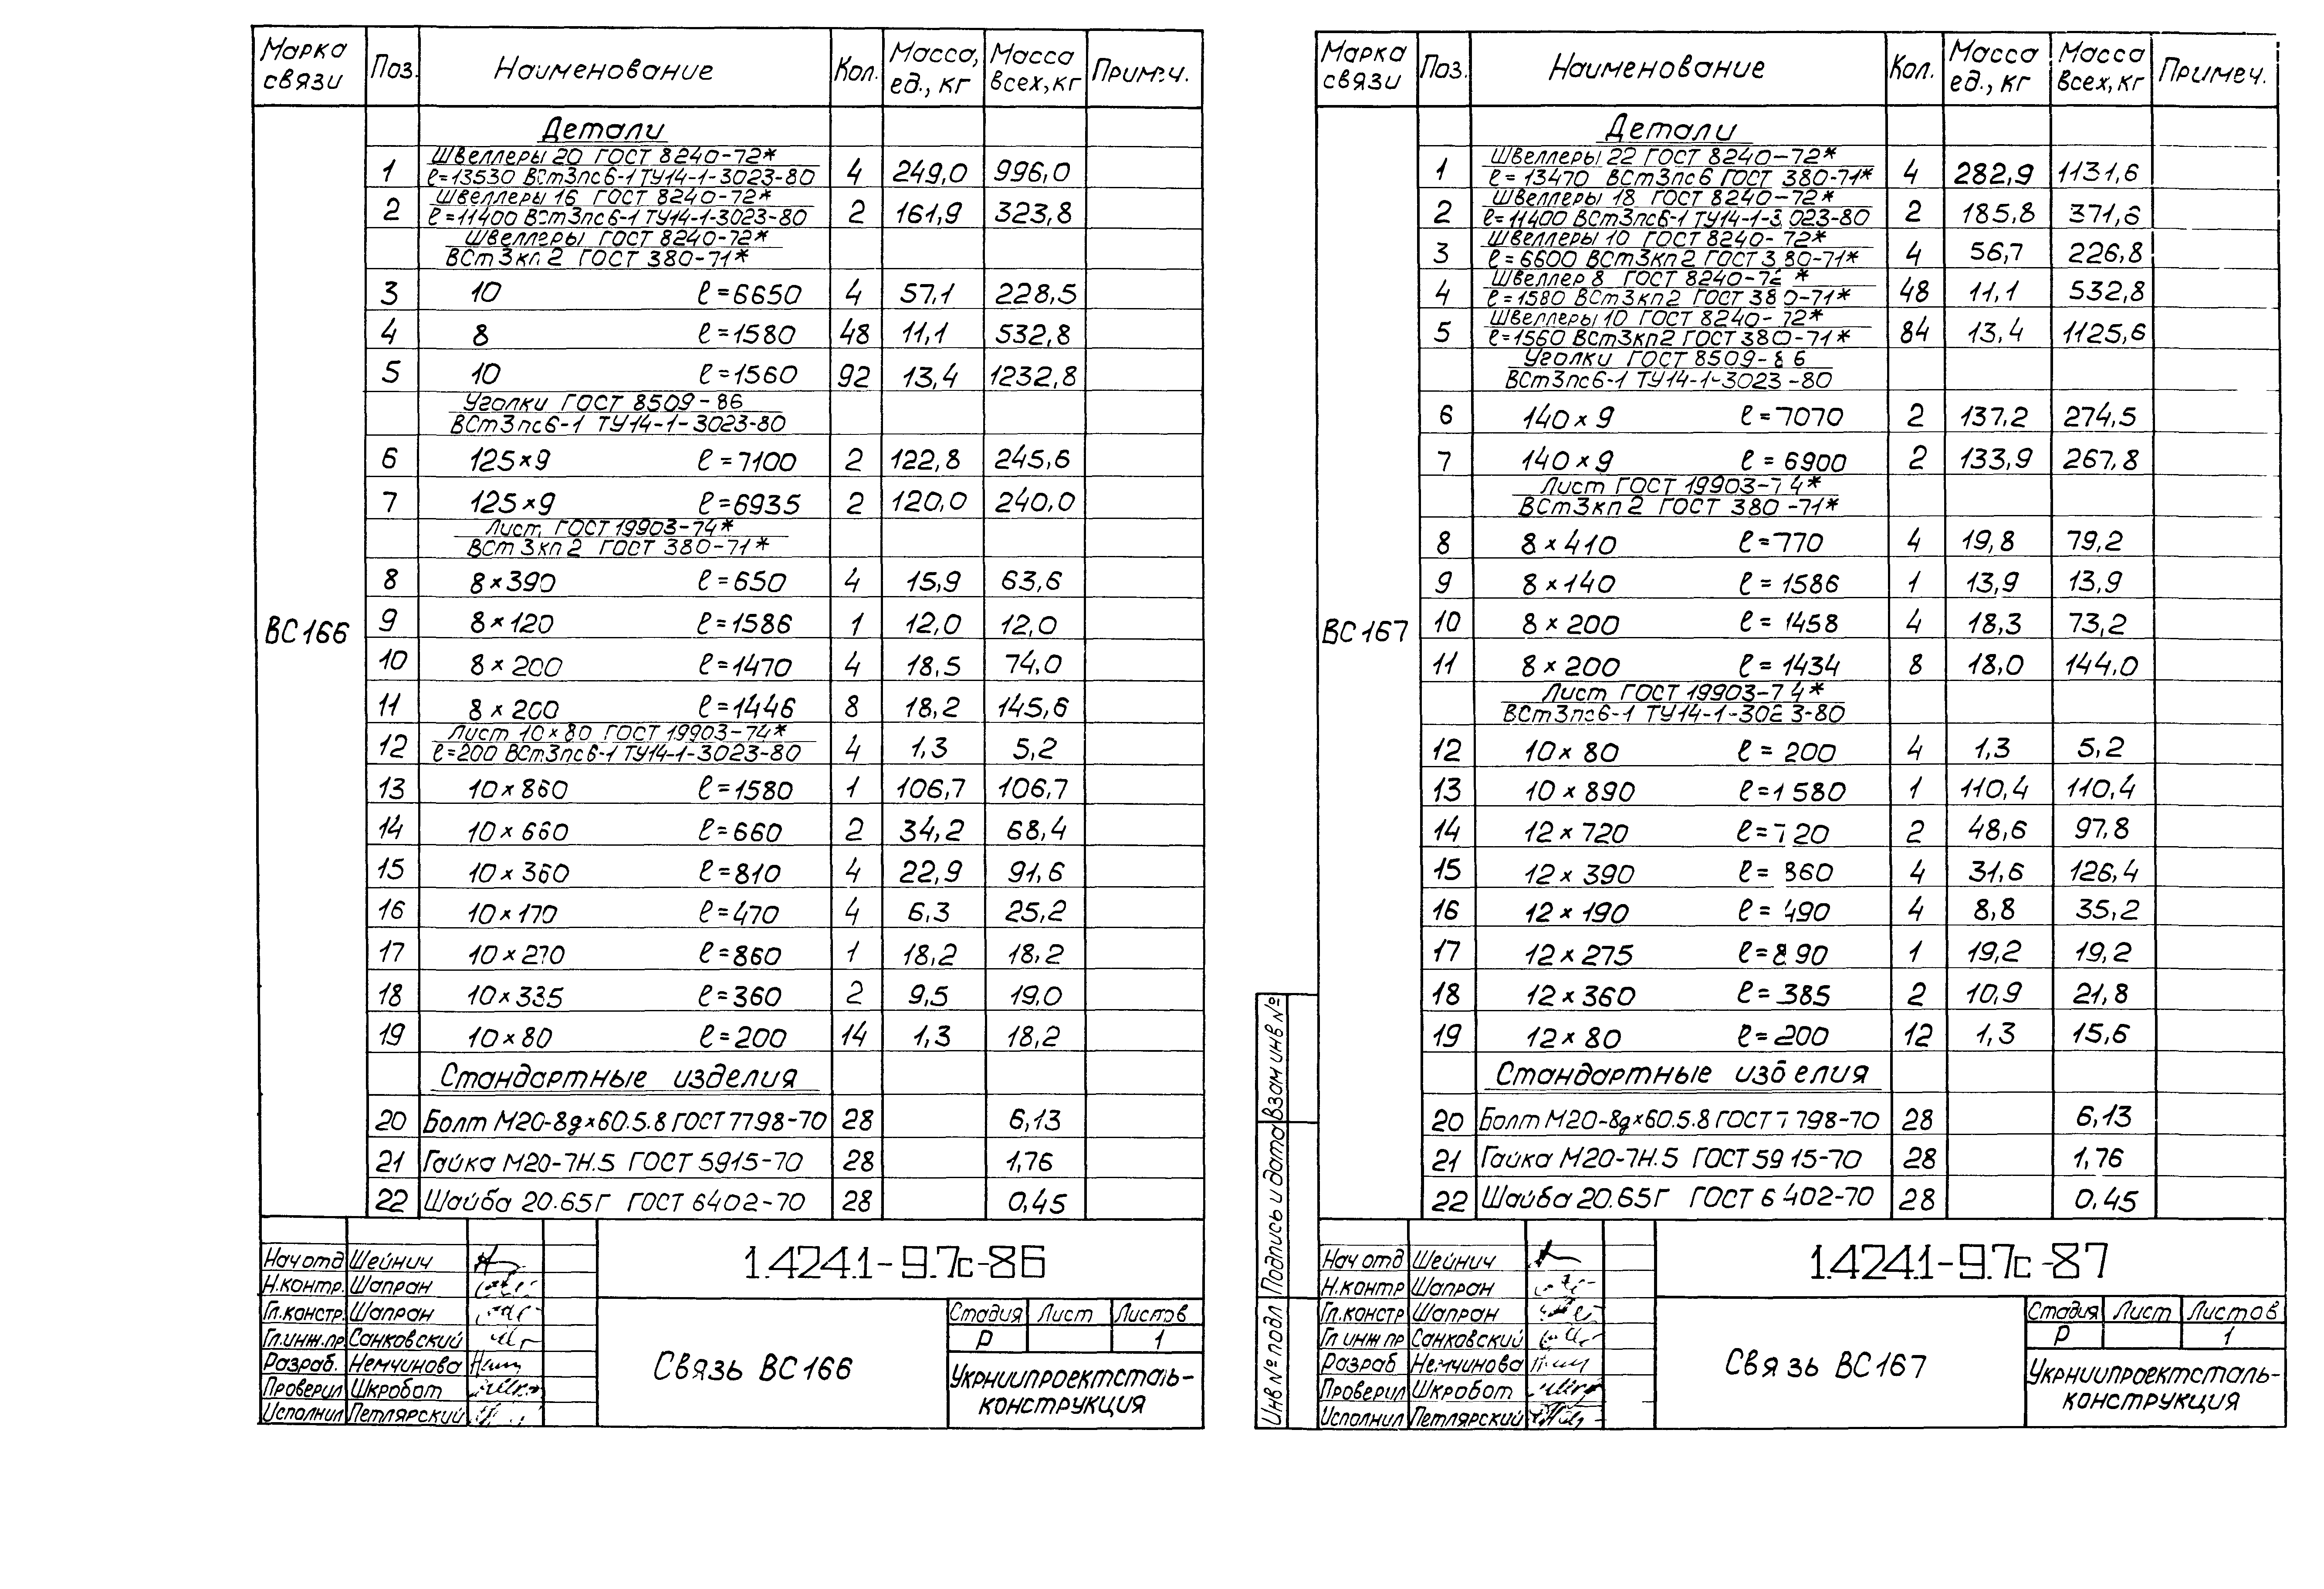 Марка связи Поз. Наименование Кол. Масса, ед., кг Масса всех, кг Примеч.
Детали
1 Швеллеры 20 ГОСТ 8240-72* ℓ=13530 ВСт3пс6-1 ТУ14-1-3023-80 4 249,0 996,0
2 Швеллеры 16 ГОСТ 8240-72* ℓ=11400 ВСт3пс6-1 ТУ14-1-3023-80 2 161,9 323,8
Швеллеры ГОСТ 8240-72*
ВСт3кп2 ГОСТ 380-71*
3 10 ℓ=6650 4 57,1 228,5
4 8 ℓ=1580 48 11,1 532,8
5 10 ℓ=1560 92 13,4 1232,8
Уголки ГОСТ 8509-86
ВСт3пс6-1 ТУ14-1-3023-80
6 125×9 ℓ=7100 2 122,8 245,6
7 125×9 ℓ=6935 2 120,0 240,0
Лист ГОСТ 19903-74*
ВСт3кп2 ГОСТ 380-71*
8 8×390 ℓ=650 4 15,9 63,6
ВС166
9 8×120 ℓ=1586 1 12,0 12,0
10 8×200 ℓ=1470 4 18,5 74,0
11 8×200 ℓ=1446 8 18,2 145,6
12 Лист 10×80 ГОСТ 19903-74* ℓ=200 ВСт3пс6-1 ТУ14-1-3023-80 4 1,3 5,2
13 10×860 ℓ=1580 1 106,7 106,7
14 10×660 ℓ=660 2 34,2 68,4
15 10×360 ℓ=810 4 22,9 91,6
16 10×170 ℓ=470 4 6,3 25,2
17 10×270 ℓ=860 1 18,2 18,2
18 10×335 ℓ=360 2 9,5 19,0
19 10×80 ℓ=200 14 1,3 18,2
Стандартные изделия
20 Болт М20-8g×60.5.8 ГОСТ 7798-70 28 6,13
21 Гайка М20-7Н.5 ГОСТ 5915-70 28 1,76
22 Шайба 20.65Г ГОСТ 6402-70 28 0,45
Нач отд Шейнич
Н.контр. Шапран
Гл.констр. Шапран
Гл.инж.пр. Санковский
Разраб. Немчинова
Проверил Шкробот
Исполнил Петлярский
1.424.1-9.7с-86
Связь ВС166
Стадия Лист Листов
Р 1
Укрниипроектсталь-
конструкция
Марка связи Поз. Наименование Кол. Масса ед., кг Масса всех, кг Примеч.
Детали
1 Швеллеры 22 ГОСТ 8240-72* ℓ=13470 ВСт3пс6 ГОСТ 380-71* 4 282,9 1131,6
2 Швеллеры 18 ГОСТ 8240-72* ℓ=11400 ВСт3пс6-1 ТУ14-1-3023-80 2 185,8 371,6
3 Швеллеры 10 ГОСТ 8240-72* ℓ=6600 ВСт3кп2 ГОСТ 380-71* 4 56,7 226,8
4 Швеллер 8 ГОСТ 8240-72* ℓ=1580 ВСт3кп2 ГОСТ 380-71* 48 11,1 532,8
5 Швеллеры 10 ГОСТ 8240-72* ℓ=1560 ВСт3кп2 ГОСТ 380-71* 84 13,4 1125,6
Уголки ГОСТ 8509-86
ВСт3пс6-1 ТУ14-1-3023-80
6 140×9 ℓ=7070 2 137,2 274,5
7 140×9 ℓ=6900 2 133,9 267,8
Лист ГОСТ 19903-74*
ВСт3кп2 ГОСТ 380-71*
8 8×410 ℓ=770 4 19,8 79,2
9 8×140 ℓ=1586 1 13,9 13,9
ВС167
10 8×200 ℓ=1458 4 18,3 73,2
11 8×200 ℓ=1434 8 18,0 144,0
Лист ГОСТ 19903-74*
ВСт3пс6-1 ТУ14-1-3023-80
12 10×80 ℓ=200 4 1,3 5,2
13 10×890 ℓ=1580 1 110,4 110,4
14 12×720 ℓ=720 2 48,6 97,8
15 12×390 ℓ=860 4 31,6 126,4
16 12×190 ℓ=490 4 8,8 35,2
17 12×275 ℓ=890 1 19,2 19,2
18 12×360 ℓ=385 2 10,9 21,8
19 12×80 ℓ=200 12 1,3 15,6
Стандартные изделия
20 Болт М20-8g×60.5.8 ГОСТ 7798-70 28 6,13
21 Гайка М20-7Н.5 ГОСТ 5915-70 28 1,76
22 Шайба 20.65Г ГОСТ 6402-70 28 0,45
Инв № подл Подпись и дата Взам инв №
Нач отд Шейнич
Н.контр Шапран
Гл.констр Шапран
Гл инж пр Санковский
Разраб Немчинова
Проверил Шкробот
Исполнил Петлярский
1.424.1-9.7с-87
Связь ВС167
Стадия Лист Листов
Р 1
Укрниипроектсталь-
конструкция